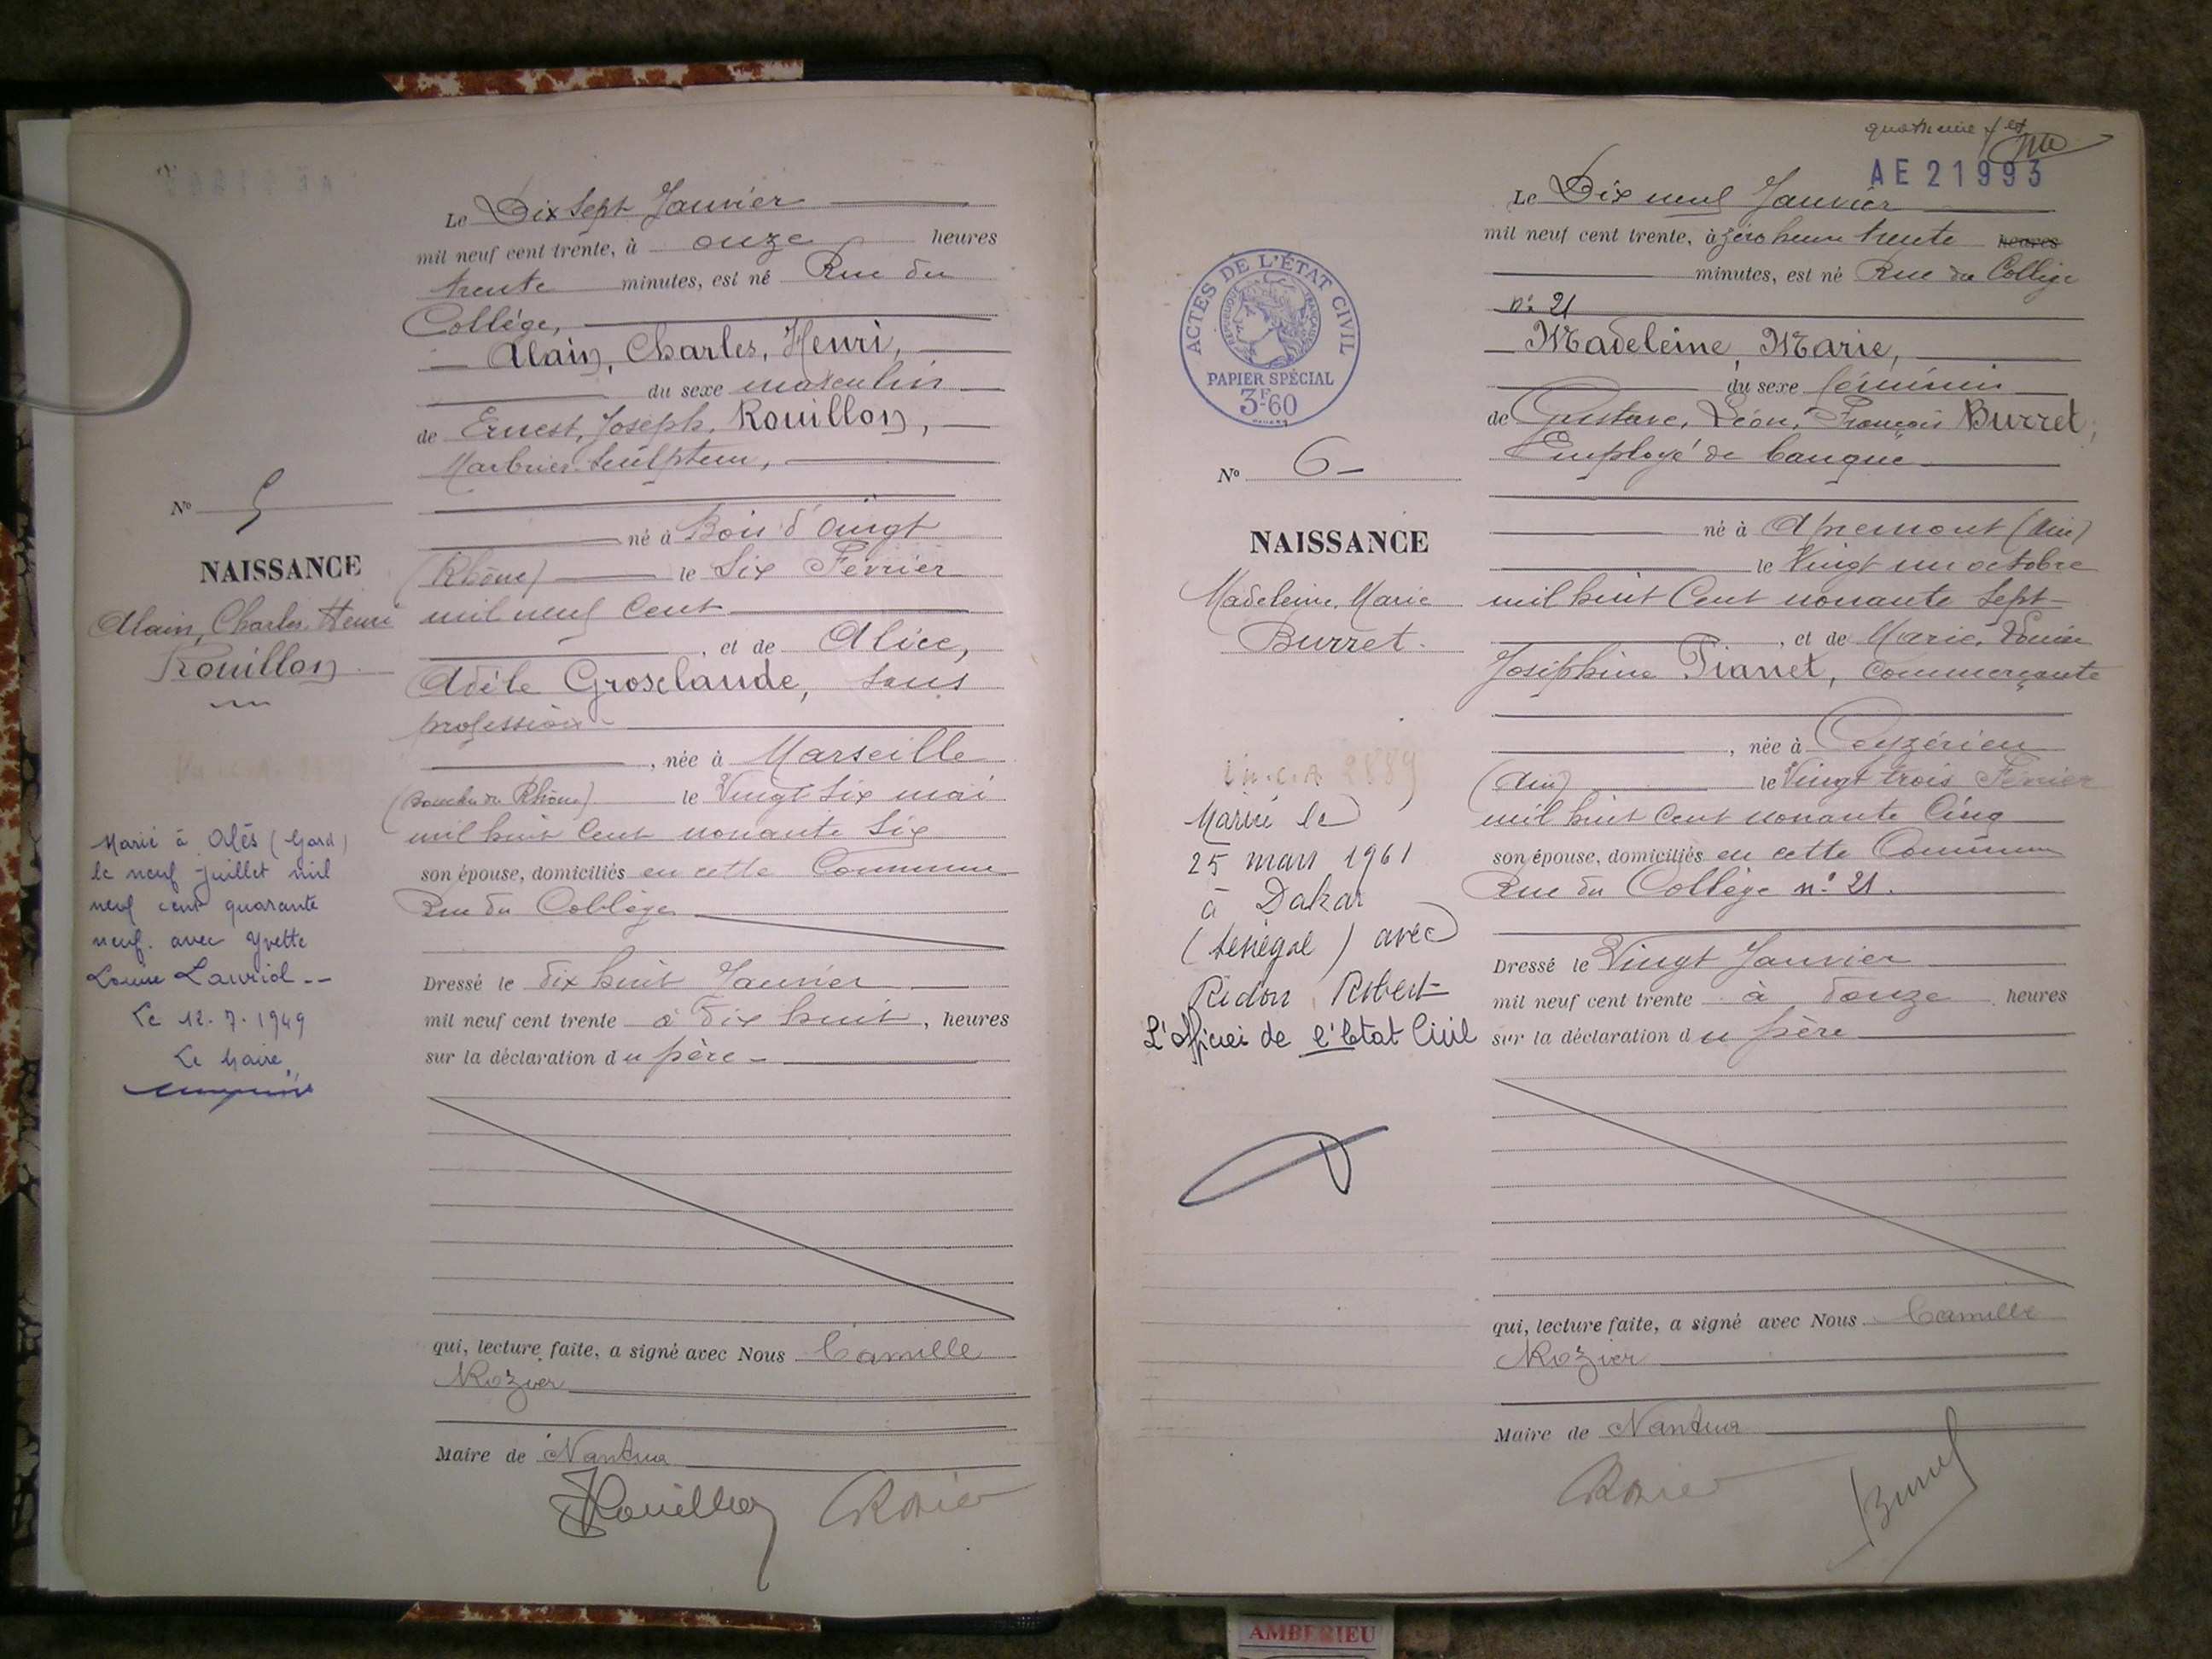 Le Dix Sept Janvier
mil neuf cent trente, à onze heures
trente minutes, est né Rue du
Collège,
Alain, Charles, Henri,
du sexe masculin
de Ernest, Joseph, Rouillon,
Marbrier Sculpteur,
né à Bois d'Oingt
(Rhône) le Six Février
mil neuf Cent
, et de Alice,
Adèle Grosclaude, sans
profession
, née à Marseille
(Bouches du Rhône) le Vingt Six mai
mil huit Cent nonante Six
son épouse, domiciliés en cette Commune
Rue du Collège
Dressé le dix huit Janvier
mil neuf cent trente à dix huit, heures
sur la déclaration du père
qui, lecture faite, a signé avec Nous Camille
Rozier
Maire de Nantua
Rouillon Rozier
N° 5
NAISSANCE
Alain, Charles Henri
Rouillon
Marié à Alès (Gard)
le neuf juillet mil
neuf cent quarante
neuf. avec Yvette
Louise Lauriol --
Le 12.7.1949
Le Maire,
AE 21993
Le Dix neuf Janvier
mil neuf cent trente, à zéro heure trente heures
minutes, est né Rue du Collège
n° 21
Madeleine, Marie,
du sexe féminin
de Gustave, Léon, François Burret,
Employé de banque
né à Apremont (Ain)
le Vingt un octobre
mil huit Cent nonante Sept
, et de Marie, Louise
Joséphine Pianet, Commerçante
, née à Ceyzérieu
(Ain) le Vingt trois Février
mil huit Cent nonante Cinq
son épouse, domiciliés en cette Commune
Rue du Collège n° 21.
Dressé le Vingt Janvier
mil neuf cent trente à douze heures
sur la déclaration du père
qui, lecture faite, a signé avec Nous Camille
Rozier
Maire de Nantua
Rozier Burret
ACTES DE L'ÉTAT CIVIL
RÉPUBLIQUE FRANÇAISE
PAPIER SPÉCIAL
3F60
N° 6
NAISSANCE
Madeleine, Marie
Burret.
Mariée le
25 mars 1961
à Dakar
(Sénégal) avec
Ridon Robert
L'officier de l'Etat Civil
AMBERIEU